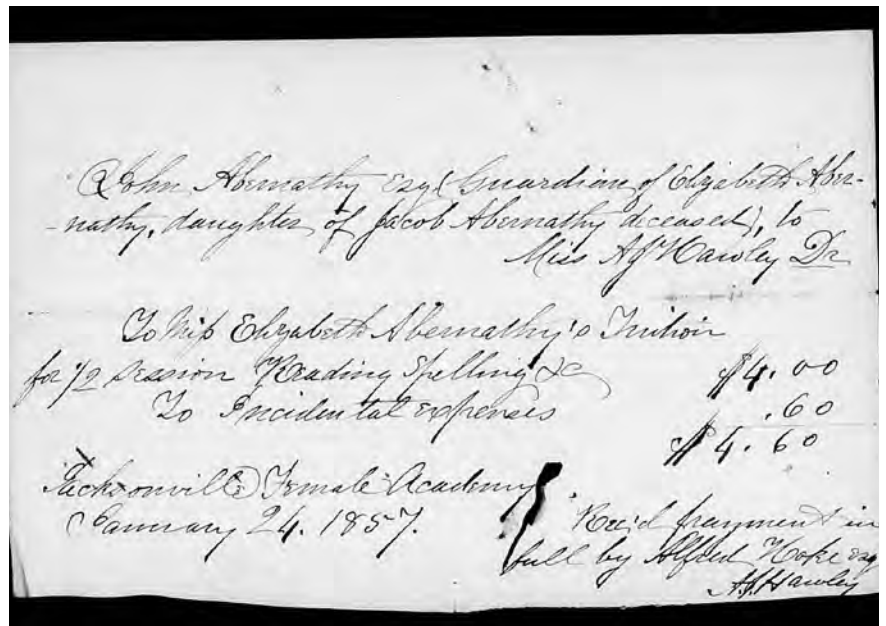 John Abernathy Esq (Guardian of Elizabeth Aber-
-nathy, daughter of Jacob Abernathy deceased), to
Miss A J Hawley Dr
To Miss Elizabeth Abernathy's Tuition
for 1/2 session Reading Spelling &c
$4.00
To Incidental expenses
.60
$4.60
Jacksonville Female Academy
January 24. 1857.
Rec'd payment in
full by Alfred Hoke esq
A J Hawley